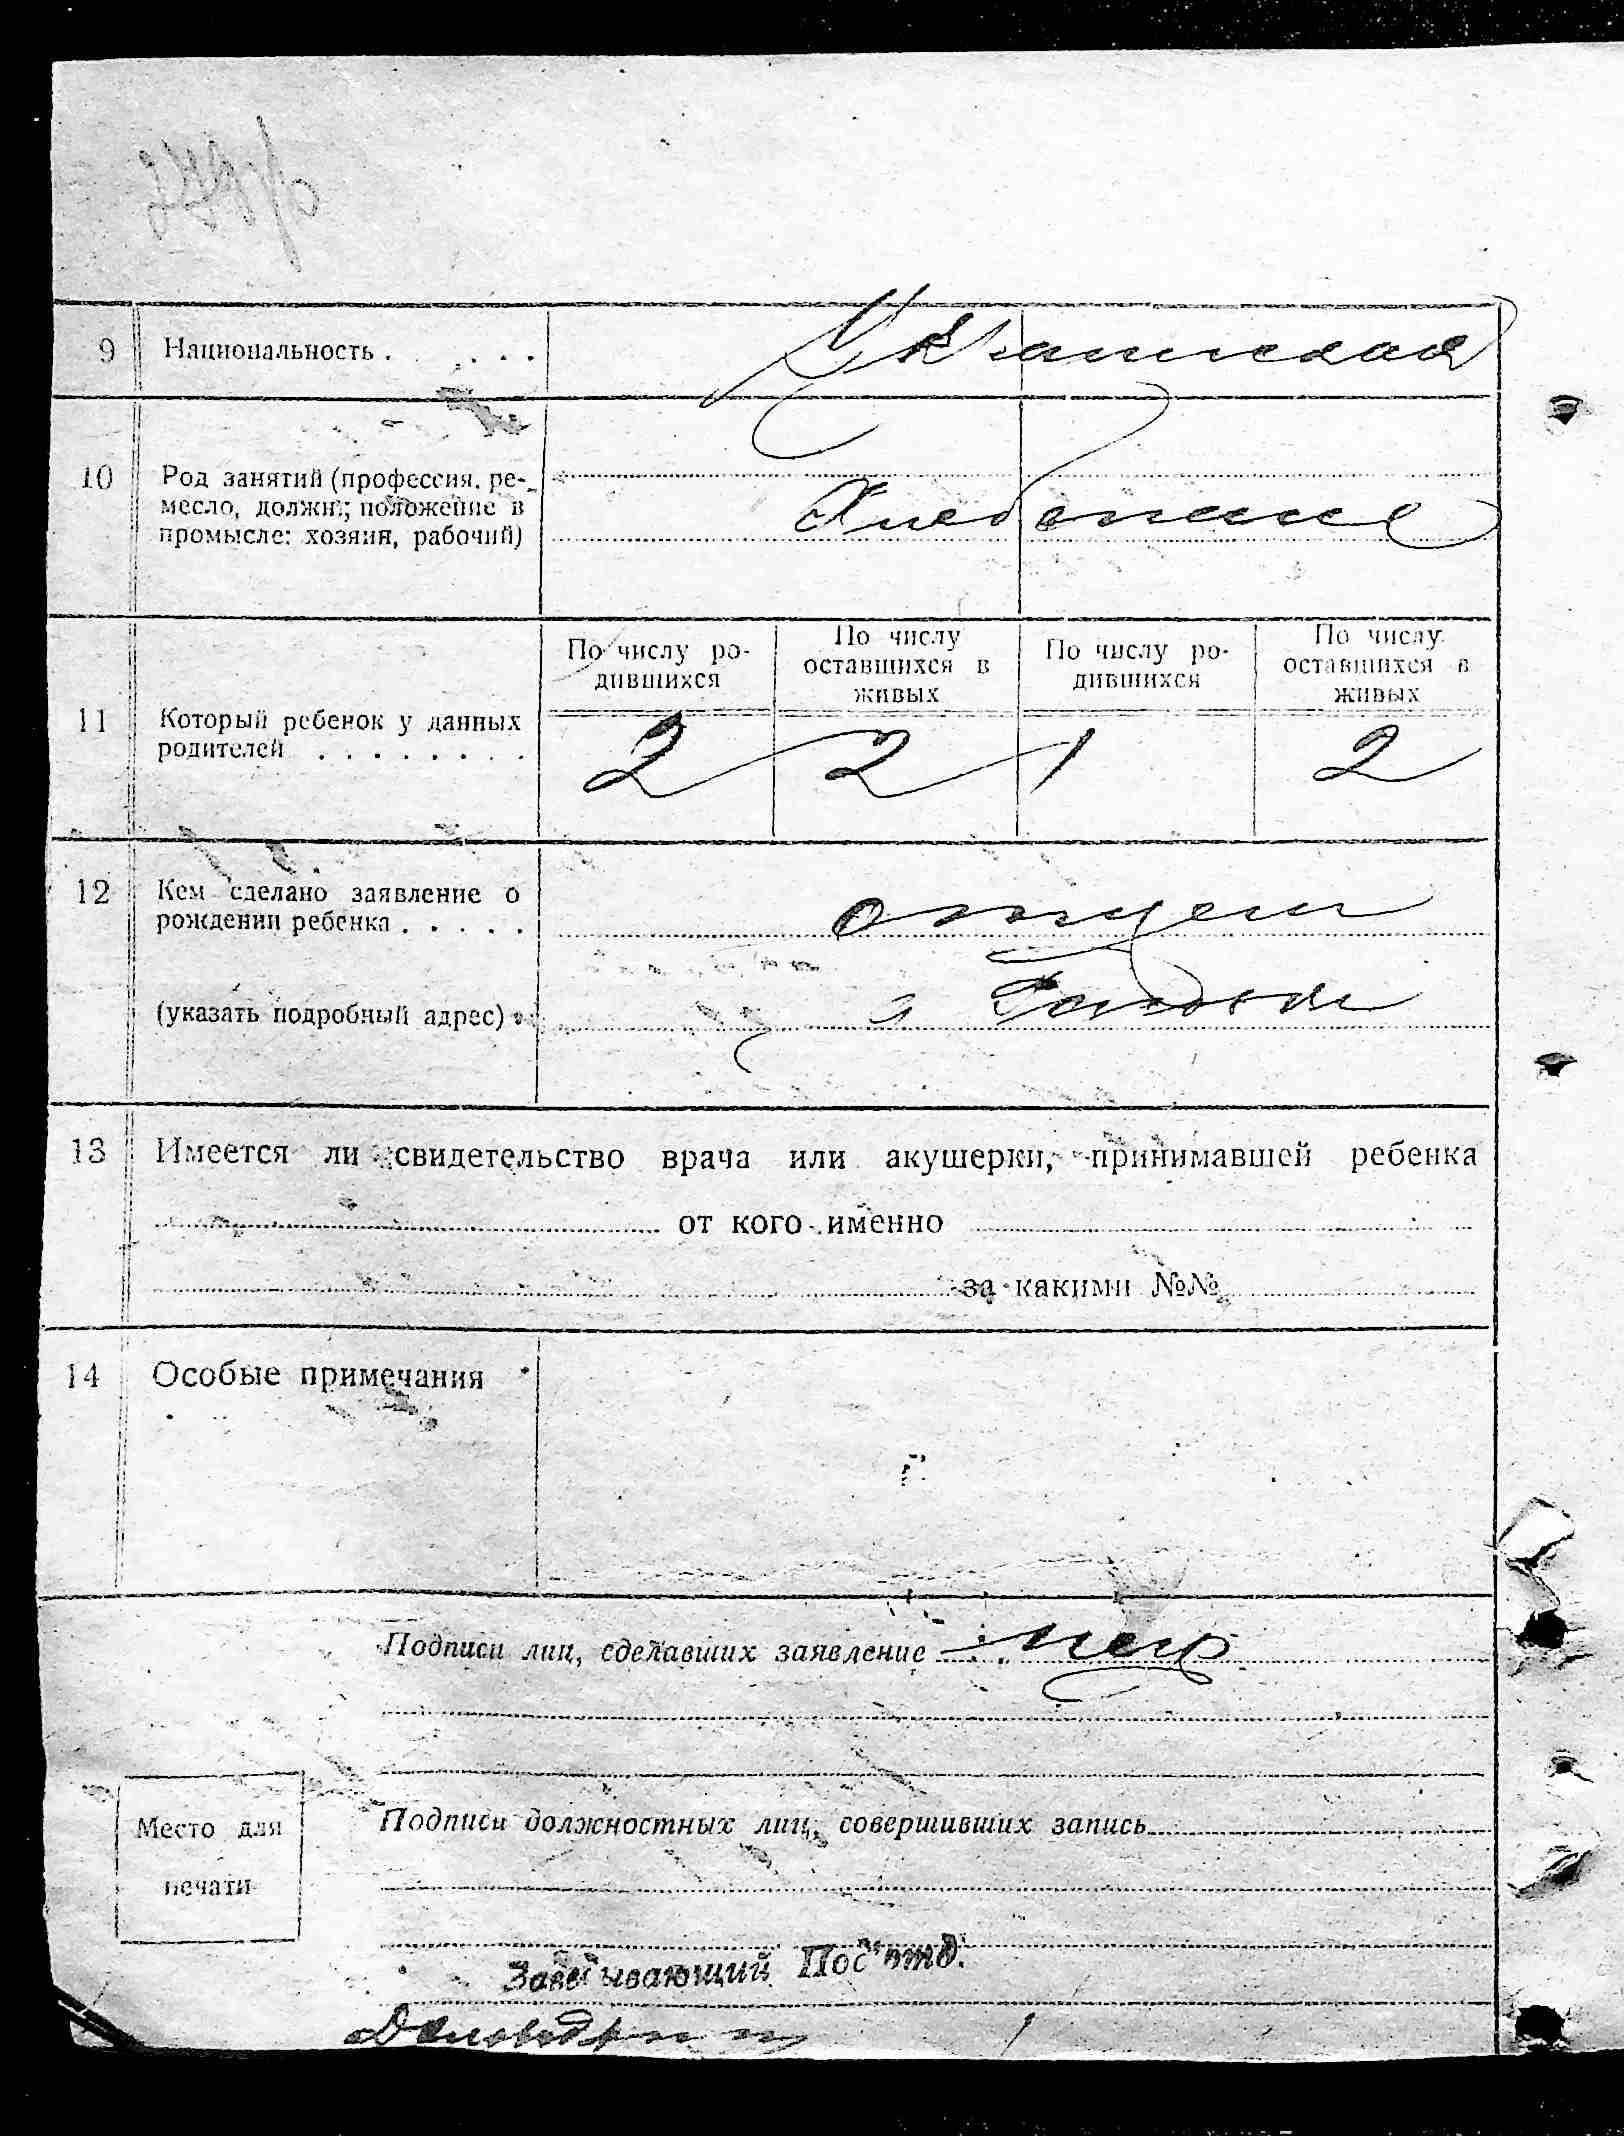 9 Национальность . . . . .
Украинская
10 Род занятий (профессия, ре-
месло, должн.; положение в
промысле: хозяин, рабочий)
Хлебопашец
По числу ро-
дившихся
По числу
оставшихся в
живых
По числу ро-
дившихся
По числу
оставшихся в
живых
11 Который ребенок у данных
родителей . . . . . . . .
2 2 1 2
12 Кем сделано заявление о
рождении ребенка . . . . .
отцем
(указать подробный адрес) .
13 Имеется ли свидетельство врача или акушерки, принимавшей ребенка
от кого именно
за какими №№
14 Особые примечания
Подписи лиц, сделавших заявление
Место для
печати
Подписи должностных лиц, совершивших запись
Заведывающий Пос отд.